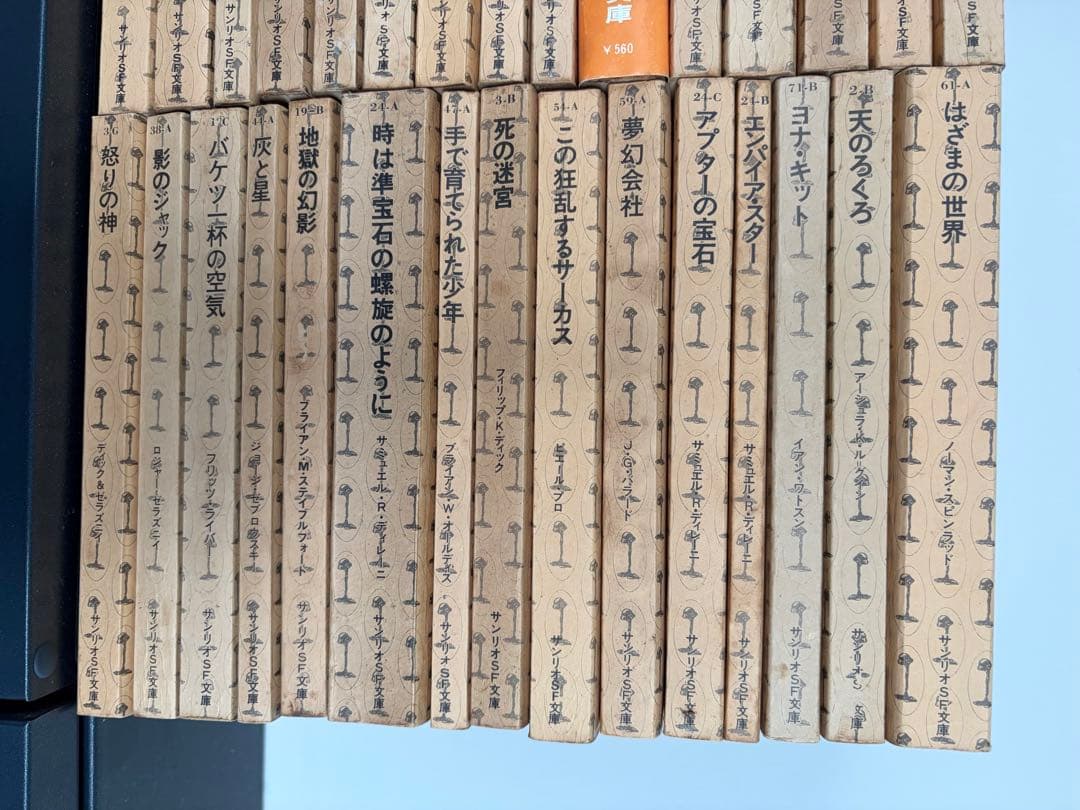 サンリオSF文庫
サンリオSF文庫
サンリオSF文庫
サンリオSF文庫
サンリオSF文庫
サンリオSF文庫
サンリオSF文庫
サンリオSF文庫
サンリオSF文庫
庫
¥560
サンリオSF文庫
SF文庫
SF文庫
SF文庫
SF文庫
3-G
怒りの神
ディック&ゼラズニイ
サンリオSF文庫
38-A
影のジャック
ロジャー・ゼラズニイ
サンリオSF文庫
1-C
バケツ一杯の空気
フリッツ・ライバー
サンリオSF文庫
44-A
灰と星
ジョージ・ゼブロウスキー
サンリオSF文庫
19-B
地獄の幻影
ブライアン・M・ステイブルフォード
サンリオSF文庫
24-A
時は準宝石の螺旋のように
サミュエル・R・ディレーニ
サンリオSF文庫
47-A
手で育てられた少年
ブライアン・W・オールディス
サンリオSF文庫
3-B
死の迷宮
フィリップ・K・ディック
サンリオSF文庫
54-A
この狂乱するサーカス
ピエール・プロ
サンリオSF文庫
59-A
夢幻会社
J・G・バラード
サンリオSF文庫
24-C
アプターの宝石
サミュエル・R・ディレーニ
サンリオSF文庫
24-B
エンパイア・スター
サミュエル・R・ディレーニ
サンリオSF文庫
71-B
ヨナ・キット
イアン・ワトスン
サンリオSF文庫
2-B
天のろくろ
アーシュラ・K・ル・グイン
サンリオS 文庫
61-A
はざまの世界
ノーマン・スピンラッド
サンリオSF文庫